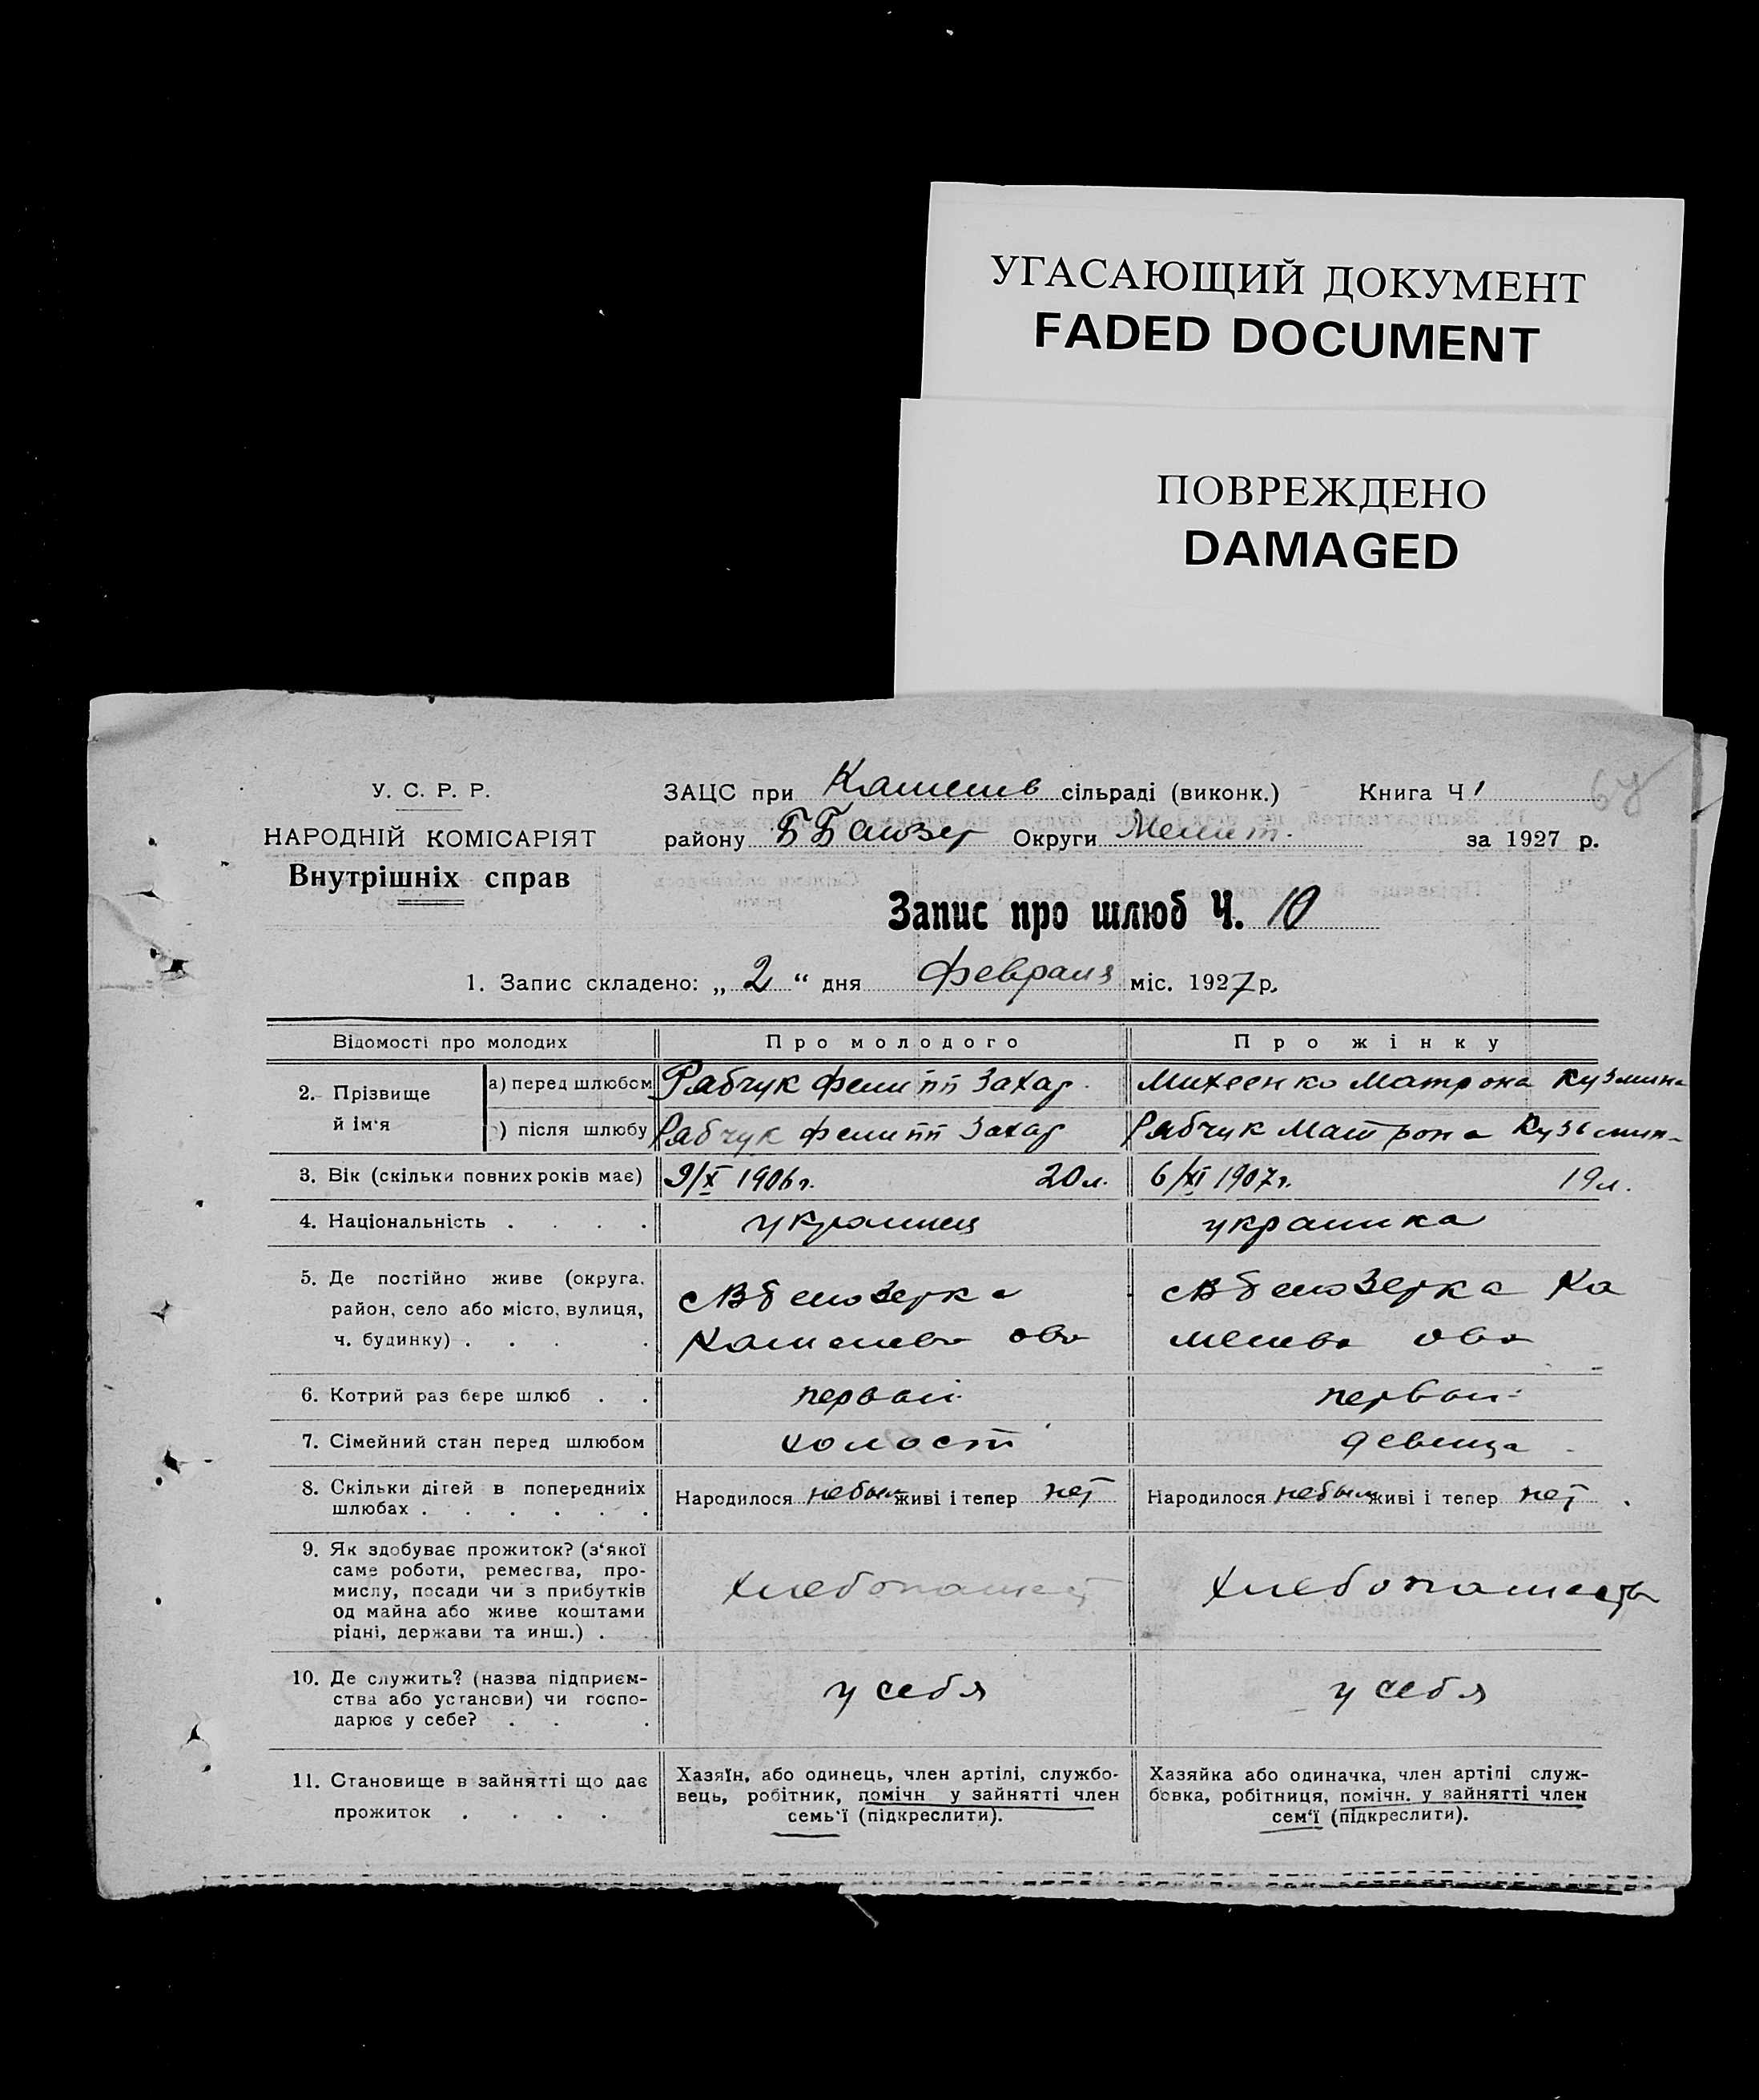 УГАСАЮЩИЙ ДОКУМЕНТ
FADED DOCUMENT
ПОВРЕЖДЕНО
DAMAGED
У. С. Р. Р.
НАРОДНІЙ КОМІСАРІЯТ
Внутрішніх справ
ЗАЦС при Каменнв сільраді (виконк.) Книга Ч 1
району ББелозер Округи Мелит. за 1927 р.
Запис про шлюб Ч. 10
1. Запис складено: „ 2 “ дня февраля міс. 1927 р.
Відомості про молодих
Про молодого
Про жінку
2. Прізвище й ім‘я
а) перед шлюбом
Рабчук Филипп Захар.
Михеенко Матрона Кузмин
) після шлюбу
Рабчук Филипп Захар
Рабчук Матрона Кузьмин
3. Вік (скільки повних років має)
9/X 1906 г. 20 л.
6/XI 1907 г. 19 л.
4. Національність . . . .
украинец
украинка
5. Де постійно живе (округа,
район, село або місто, вулиця,
ч. будинку) . . . .
с В Белозерка
Каменева ова
с В Белозерка Ка
менева ова
6. Котрий раз бере шлюб . .
первый
первый
7. Сімейний стан перед шлюбом
холост
девица
8. Скільки дітей в попередниіх
шлюбах . . . . . .
Народилося небыл живі і тепер нет
Народилося небыл живі і тепер нет
9. Як здобуває прожиток? (з‘якої
саме роботи, ремества, про-
мислу, посади чи з прибутків
од майна або живе коштами
рідні, держави та инш.) .
хлебопашест
хлебопашеств
10. Де служить? (назва підприєм-
ства або установи) чи госпо-
дарює у себе? . . .
у себя
у себя
11. Становище в зайнятті що дає
прожиток . . . .
Хазяїн, або одинець, член артілі, службо-
вець, робітник, помічн у зайнятті член
семь‘ї (підкреслити).
Хазяйка або одиначка, член артілі служ-
бовка, робітниця, помічн. у зайнятті член
сем‘ї (підкреслити).